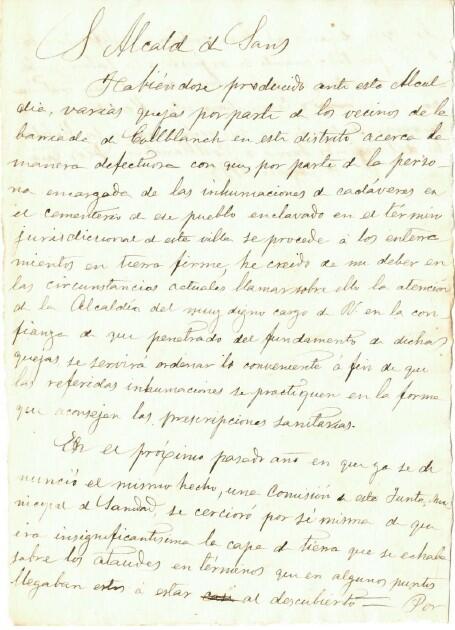 S Alcald d Sans
Habiéndose producido ante esta Alcal-
día, varias quejas por parte de los vecinos de la
barriada de Collblanch en este distrito acerca la
manera defectuosa con que, por parte de la perso-
na encargada de las inhumaciones de cadáveres en
el cementerio de ese pueblo enclavado en el término
jurisdiccional de esta villa se procede á los enterra-
mientos en tierra firme, he creido de mi deber en
las circunstancias actuales llamar sobre ello la atención
de la Alcaldía del muy digno cargo de V. en la con-
fianza de que penetrado del fundamento de dichas
quejas se servirá ordenar lo conveniente á fin de que
las referidas inhumaciones se practiquen en la forma
que aconsejan las prescripciones sanitarias.
En el próximo pasado año en que ya se de-
nunció el mismo hecho, una Comisión de esta Junta Mu-
nicipal d Sanidad, se cercioró por sí misma de que
era insignificantísima la capa de tierra que se echaba
sobre los ataudes en términos que en algunos puntos
llegaban estos á estar casi al descubierto — Por